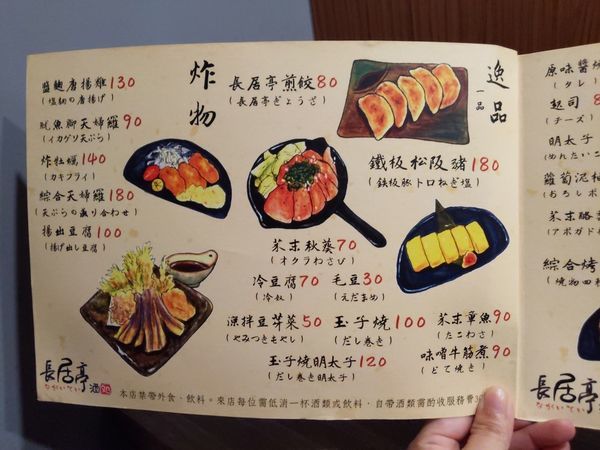 炸物
鹽麴唐揚雞130
(塩麹の唐揚げ)
魷魚腳天婦羅90
(イカゲソ天ぷら)
炸牡蠣140
(カキフライ)
綜合天婦羅180
(天ぷらの盛り合わせ)
揚出豆腐100
(揚げ出し豆腐)
逸品
一品
長居亭煎餃80
(長居亭ぎょうざ)
鐵板松阪豬180
(鉄板豚トロねぎ塩)
芥末秋葵70
(オクラわさび)
冷豆腐70
(冷奴)
毛豆30
(えだまめ)
涼拌豆芽菜50
(やみつきもやし)
玉子燒100
(だし巻き)
芥末章魚90
(たこわさ)
玉子燒明太子120
(だし巻き明太子)
味噌牛筋煮90
(どて焼き)
長居亭
ながいてい
本店禁帶外食、飲料。來店每位需低消一杯酒類或飲料，自帶酒類需酌收服務費
原味醬烤
(タレ)
起司8
(チーズ)
明太子
(めんたいこ
蘿蔔泥柚
(おろしポ
芥末酪
(アボガド
綜合烤
(焼物四種
長居亭
ながいてい